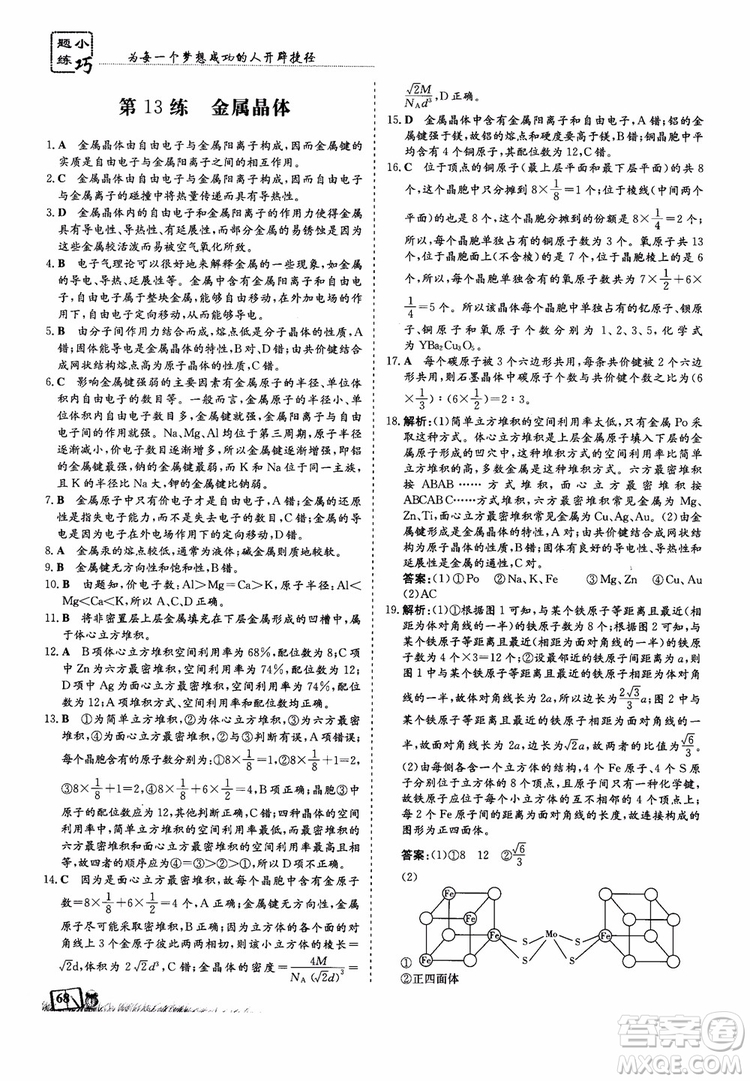 小巧题练
为每一个梦想成功的人开辟捷径
第13练 金属晶体
1. A 金属晶体由自由电子与金属阳离子构成,因而金属键的
实质是自由电子与金属阳离子间的相互作用。
2. C 金属晶体由自由电子与金属阳离子构成,因而自由电子
与金属离子的碰撞中将热量传递而具有导热性。
3. D 金属晶体内的自由电子和金属阳离子的作用力使金属
具有导电性、有延展性,而部分金属的易锈蚀是因为这些金
属较活泼而易被空气氧化所致。
4. B 电子气理论可以很好地解释金属的一些现象,如金属
的导电、导热、延展性等。金属晶体由金属阳离子与自由电
子构成,自由电子属于整块金属,能够自由移动,在外加电场
的作用下,自由电子定向移动,从而能够导电。
5. B 由分子间作用力结合而成,熔点低是分子晶体的特性,A
错;固体能导电是金属晶体的特性,B正确;由共价键结合
成网状结构均是原子晶体的特性,C、D错。
6. C 影响金属键强弱的主要因素有金属原子的半径、单位体
积内自由电子的数目等。一般金属原子的半径小、单位体
积内自由电子数目多,金属键强,金属阳离子与自由电
子间的作用就强。Na、Mg、Al均位于第三周期,原子半径
逐渐减小,价电子数目逐渐增多,所以金属键逐渐增强,其
中Al的金属键最强,Na的最弱,而K和Na位于同一主族,
且K的半径比Na大,钾的金属键比钠弱。
7. B 金属原子中不是只有价电子才是自由电子。金属的还原
性与失电子能力有关,与失电子数目无关。金属晶体中的
自由电子在外加电场作用下才可发生定向移动,产生电流。
8. A 金属汞的熔点较低,通常为液体;碱金属质地较软。
9. B 金属键无方向性和饱和性。钠是良好的导热导电体。
10. B 由题知,价电子数:Al>Mg=Ca>K,原子半径:Al<
Mg<Ca<K,所以金属键强弱:Al>Mg>Ca>K,B正确。
11. B 将非密置层上层金属填充在下层金属形成的凹槽中,属
于体心立方堆积。
12. A B项体心立方堆积空间利用率为68%,配位数为8;C项
中Zn为六方最密堆积,空间利用率为74%,配位数为12;D
项中Ag为面心立方最密堆积,空间利用率为74%,配位
数为12。
13. B ①为简单立方堆积,②为体心立方堆积,③为六方最密
堆积,④为面心立方最密堆积,②与③判断有误,A项错误;
每个晶胞含有的原子数分别为:①8×1/8=1,②8×1/8+1=2,
③8×1/8+1=2,④8×1/8+6×1/2=4,B项正确;晶胞③中
原子的配位数应为12,其他判断正确,C项错误;四种晶体的空间
利用率中,简单立方堆积的空间利用率<体心立方堆积的
空间利用率<六方最密堆积和面心立方最密堆积的空间利
用率,所以应为④=③>②>①,D项错误。
14. C 因为是面心立方最密堆积,故每个晶胞中含有金原子
数=8×1/8+6×1/2=4,A错误;金属键无方向性,金属金
原子尽可能采取密堆积,B错误;因为立方体的各个面的对
角线长为3个金原子彼此两两相切,则该金的立方体的棱长=
√2d,故V晶胞=2√2d³,C正确;金晶体的密度=4M/(N_A(√2d)³)=
√2M/(N_A d³),D正确。
15. D 金属晶体中含有金属阳离子和自由电子,A错;铝的金
属键强于镁,故铝的熔点和沸点比镁高,B错;晶胞中平
均含有4个金属原子,C错;配位数为12,D正确。
16. C 位于顶点的铜原子(最上层平面和最下层平面)共8
个,这个晶胞中只分摊到8×1/8=1个;位于棱线(中间两个
平面)的也有8个,这个晶胞分摊到的份额是8×1/4=2个,
故每个晶胞单独占有的铜原子数为3个。氧原子共13
个,位于面上的(不含棱)有7个,位于棱上的有6个,
因此每个晶胞单独占有的氧原子数为7×1/2+6×
1/4=5个。所以,每个晶体单独占有的钇原子、钡原
子、铜原子和氧原子个数分别为1、2、3、5,化学式
为YBa₂Cu₃O₅。
17. A 每个碳原子被3个六边形共用,每条共价键被2个六边
形共用,则石墨晶体中的碳原子数∶共价键数=(6×
1/3)∶(6×1/2)=2∶3。
18. 解析:(1)简单立方堆积的空间利用率太低,只有金属Po采
取这种方式。体心立方堆积是上层金属原子填入下层的金
属原子形成的凹穴中,这种堆积方式的空间利用率比简单
立方堆积的高,多数金属是这种堆积方式。六方最密堆积
按ABAB……方式,面心立方最密堆积按
ABCABC……方式,六方最密堆积常见金属为Mg、
Zn、Ti,面心立方最密堆积常见金属为Cu、Ag、Au。(2)由金
属键形成是金属晶体的特性,A正确;由共价键结合成网状
结构是原子晶体的特性;固体有良好的导电性、导热性和延
展性是金属的通性,C正确。
答案:(1)①Po ②Na、K、Fe ③Mg、Zn ④Cu、Au
(2)AC
19. 解析:(1)①根据图1可知,与某个铁原子等距离且最近
的铁原子有8个。根据图2可知,与某个铁原子等距离且最
近的铁原子有12个。②设相邻的铁原子间距离为a,
则图1中与某个铁原子等距离且最近的铁原子为体对角
线的一半,故立方体的棱长为2√3/3 a;图2中与某个铁原子
等距离且最近的铁原子为面对角线的一半,故立方
体的棱长为√2a,两者的比值为√6/3。
(2)由每侧各含一个立方体的结构,4个Fe原子、4个S原
子位于立方体的8个顶点,且可形成12个化学键,
可得每侧的4个铁原子在小立方体上互不相邻,
所以Mo与周围的4个S原子结合,4个铁原子构成的空间图
形为正四面体。
答案:(1)①8 12 ②√6/3
(2)
①
Fe
Fe
Fe
Fe
S
S
Mo
S
S
Fe
Fe
Fe
Fe
②正四面体
68
答案圈
MXQE.COM